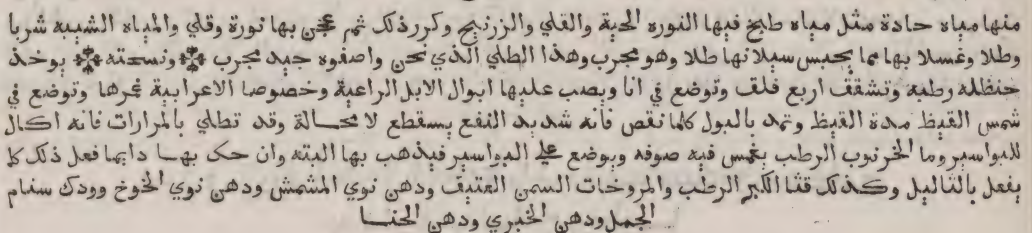 منها مياه حادة مثل مياه طبخ فيها النوره الحية والقلي والزرنيخ وكرر ذلك ثم عجن بها نورة وقلي والمياه الشبيبه شربا
وطلا وغسلا بها مما يحبس سيلانها طلا وهو مجرب وهذا الطلي الذي نحن واصفوه جيد مجرب ونسخته يوخذ
حنظله رطبه وتشقف اربع فلق وتوضع في انا ويصب عليها ابوال الابل الراعية وخصوصا الاعرابية غمرها وتوضع في
شمس القيظ مدة القيظ وتمد بالبول كلما نقص فانه شديد النفع يسقطع لا محالة وقد تطلي بالمرارات فانه اكال
للبواسير وما الخرنوب الرطب يغمس فيه صوفه ويوضع علي البواسير فيذهب بها البته وان حك بها دايما فعل ذلك كما
يفعل بالثاليل وكذلك قثا الكبر الرطب والمروخات السمن العتيق ودهن نوي المشمش ودهن نوي الخوخ وودك سنام
الجمل ودهن الخيري ودهن الحنا